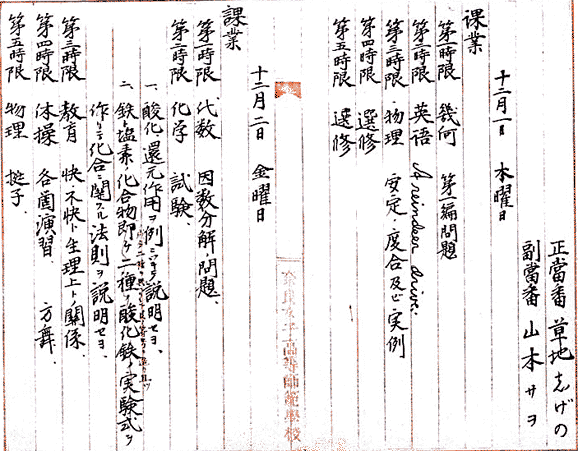 正當番 草地志げの
副當番 山本サヲ
十二月一日 木曜日
課業
第一時限 幾何 第一編問題
第二時限 英語 A reindeer drive.
第三時限 物理 安定ノ度合及ビ実例
第四時限 選修
第五時限 選修
奈良女子高等師範學校
十二月二日 金曜日
課業
第一時限 代数 因数分解ノ問題、
第二時限 化学 試験、
一、酸化還元作用ヲ例ニツキテ説明セヨ、
二、鉄ト塩素ノ化合物即チ二種ノ酸化鉄ノ実験式ヲ
作リテ化合ニ関スル法則ヲ説明セヨ、
第三時限 教育 快不快ト生理上ノ関係、
第四時限 体操 各個演習、方舞、
第五時限 物理 梃子、